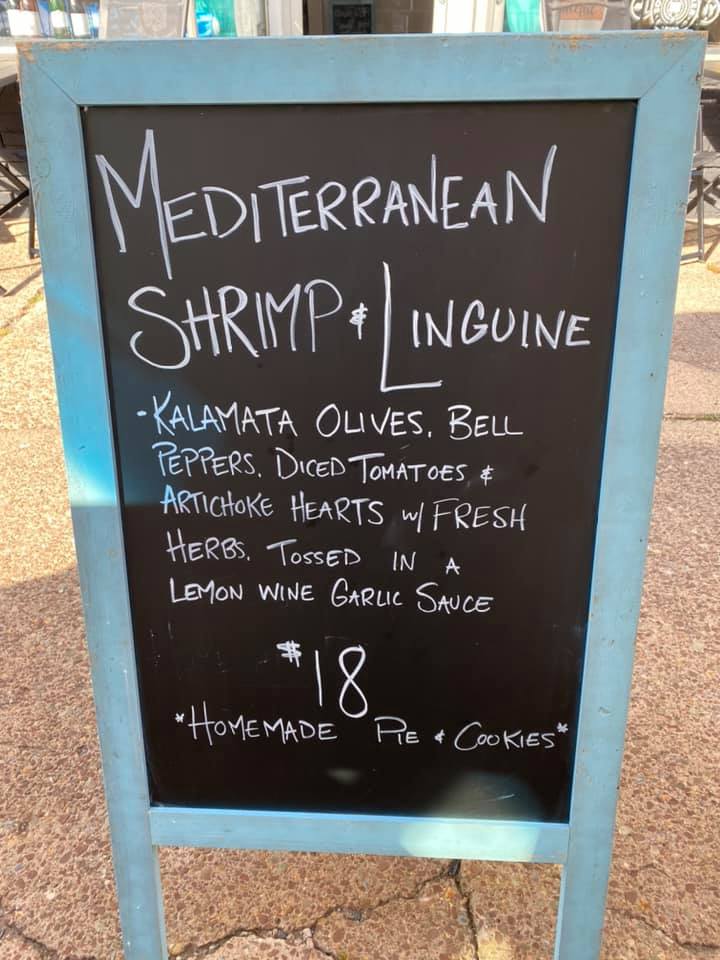 MEDITERRANEAN
SHRIMP & LINGUINE
-KALAMATA OLIVES, BELL
PEPPERS, DICED TOMATOES &
ARTICHOKE HEARTS W/ FRESH
HERBS. TOSSED IN A
LEMON WINE GARLIC SAUCE
$18
*HOMEMADE PIE & COOKIES*